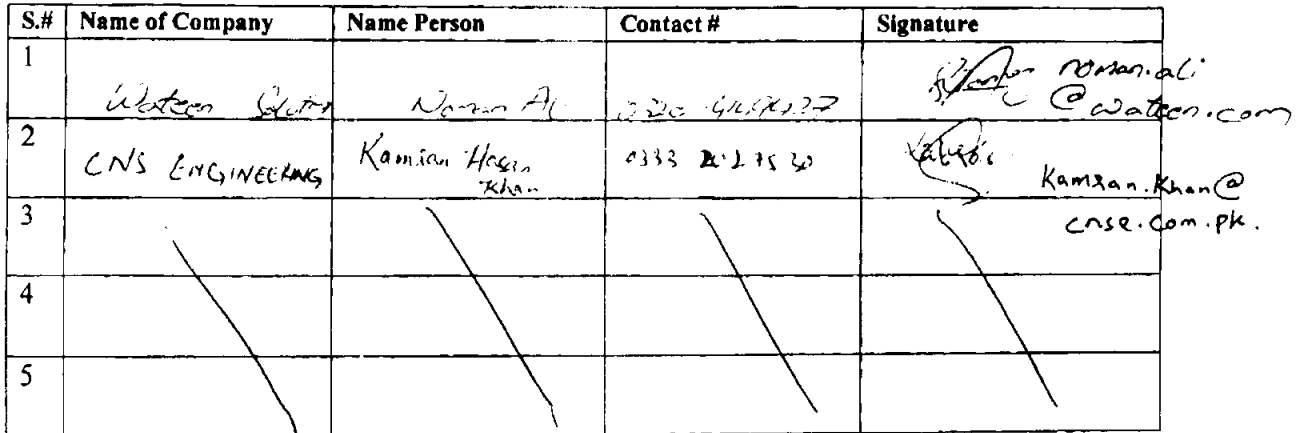 S.# Name of Company Name Person Contact # Signature
1
Wateen Noman Ali noman.ali
@wateen.com
2
CNS ENGINEERING Kamran Hasan 0333
Khan
Kamran.Khan@
cnse.com.pk.
3
4
5